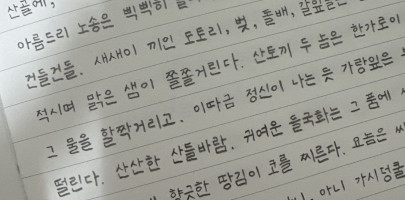 산골에,
아름드리 노송은 빽빽히
건들건들. 새새이 끼인 도토리, 벚, 돌배, 갈잎들은
적시며 맑은 샘이 쫄쫄거린다. 산토끼 두 놈은 한가로이
그 물을 할짝거리고. 이따금 정신이 나는 듯 가랑잎은
떨린다. 산산한 산들바람. 귀여운 들국화는 그 품에
향긋한 땅김이 코를 찌른다. 요놈은 싸
아니 가시덩쿨